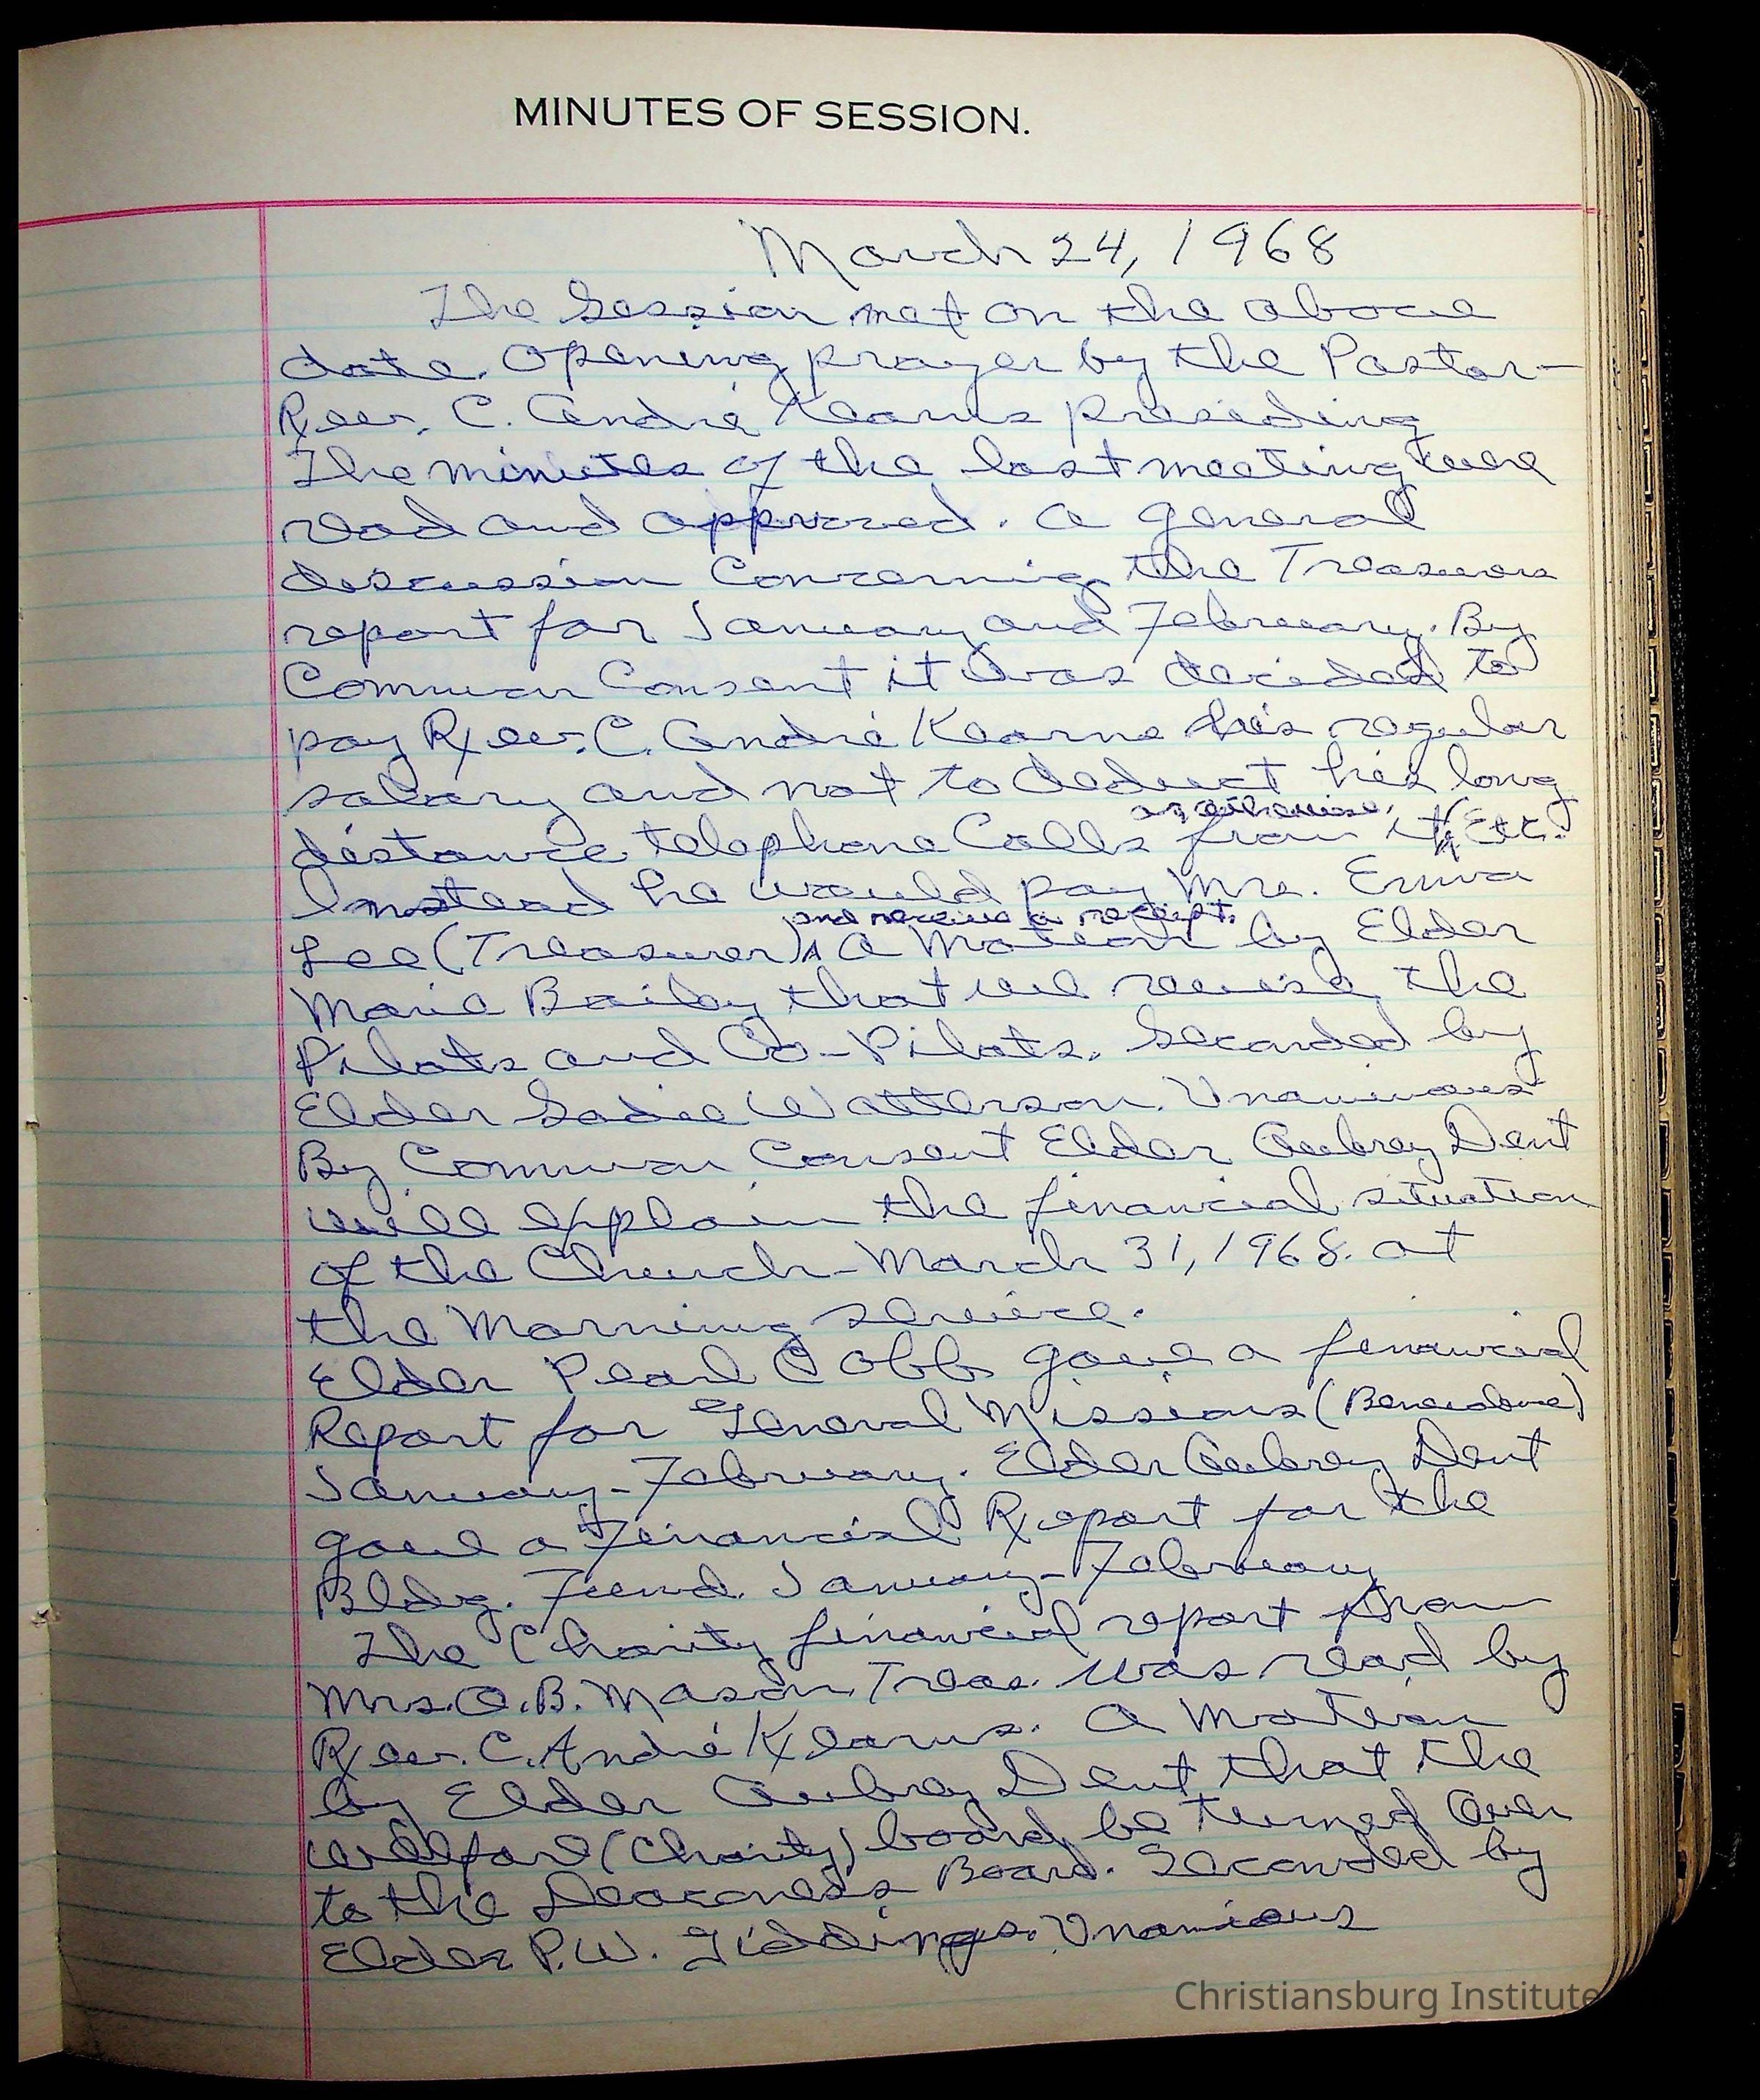 MINUTES OF SESSION.
March 24, 1968
The Session met on the above
date. Opening prayer by the Pastor-
Rev. C. André Kearns presiding
The minutes of the last meeting were
read and approved. A general
discussion concerning the Treasurers
report for January and February. By
Common Consent it was decided to
pay Rev. C. André Kearns his regular
salary and not to deduct his long
or otherwise,
distance telephone Calls from it, Etc.
Instead he would pay Mrs. Erma
and receive a receipt.
Lee (Treasurer) A Motion by Elder
Marie Bailey that we revise the
Pilots and Co-Pilots. Seconded by
Elder Sadie Watterson. Unanimous
By Common Consent Elder Aubrey Dent
will explain the financial situation
of the Church-March 31, 1968. at
the Morning service.
Elder Pearl Cobbs gave a financial
Report for General Missions (Benevolence)
January-February. Elder Aubrey Dent
gave a Financial Report for the
Bldg. Fund. January-February
The Charity financial report from
Mrs. O.B. Mason, Treas. was read by
Rev. C. André Kearns. A Motion
by Elder Aubrey Dent that the
welfare (Charity) board be turned Over
to the Deaconess Board. Seconded by
Elder P.W. Giddings. Unamious
Christiansburg Institute